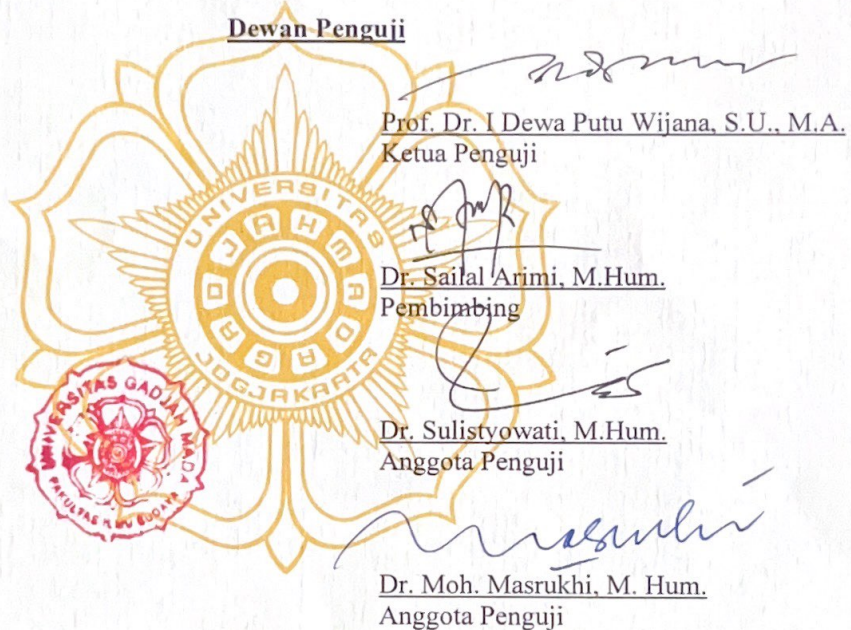 Dewan Penguji
Prof. Dr. I Dewa Putu Wijana, S.U., M.A.
Ketua Penguji
Dr. Sailal Arimi, M.Hum.
Pembimbing
Dr. Sulistyowati, M.Hum.
Anggota Penguji
Dr. Moh. Masrukhi, M. Hum.
Anggota Penguji
UNIVERSITAS
GADJAH MADA
JOGJAKARTA
UNIVERSITAS GADJAH MADA
FAKULTAS ILMU BUDAYA